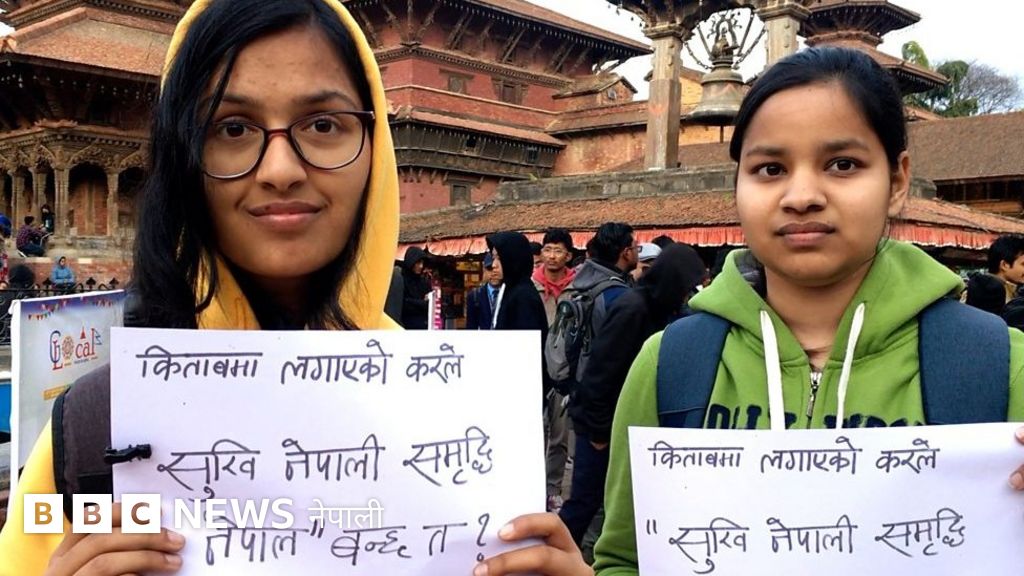 Local
किताबमा लगाएको करले
सुखि नेपाली समृद्धि
नेपाल" बन्छ त ?
किताबमा लगाएको करले
"सुखि नेपाली समृद्धि
BBC NEWS नेपाली